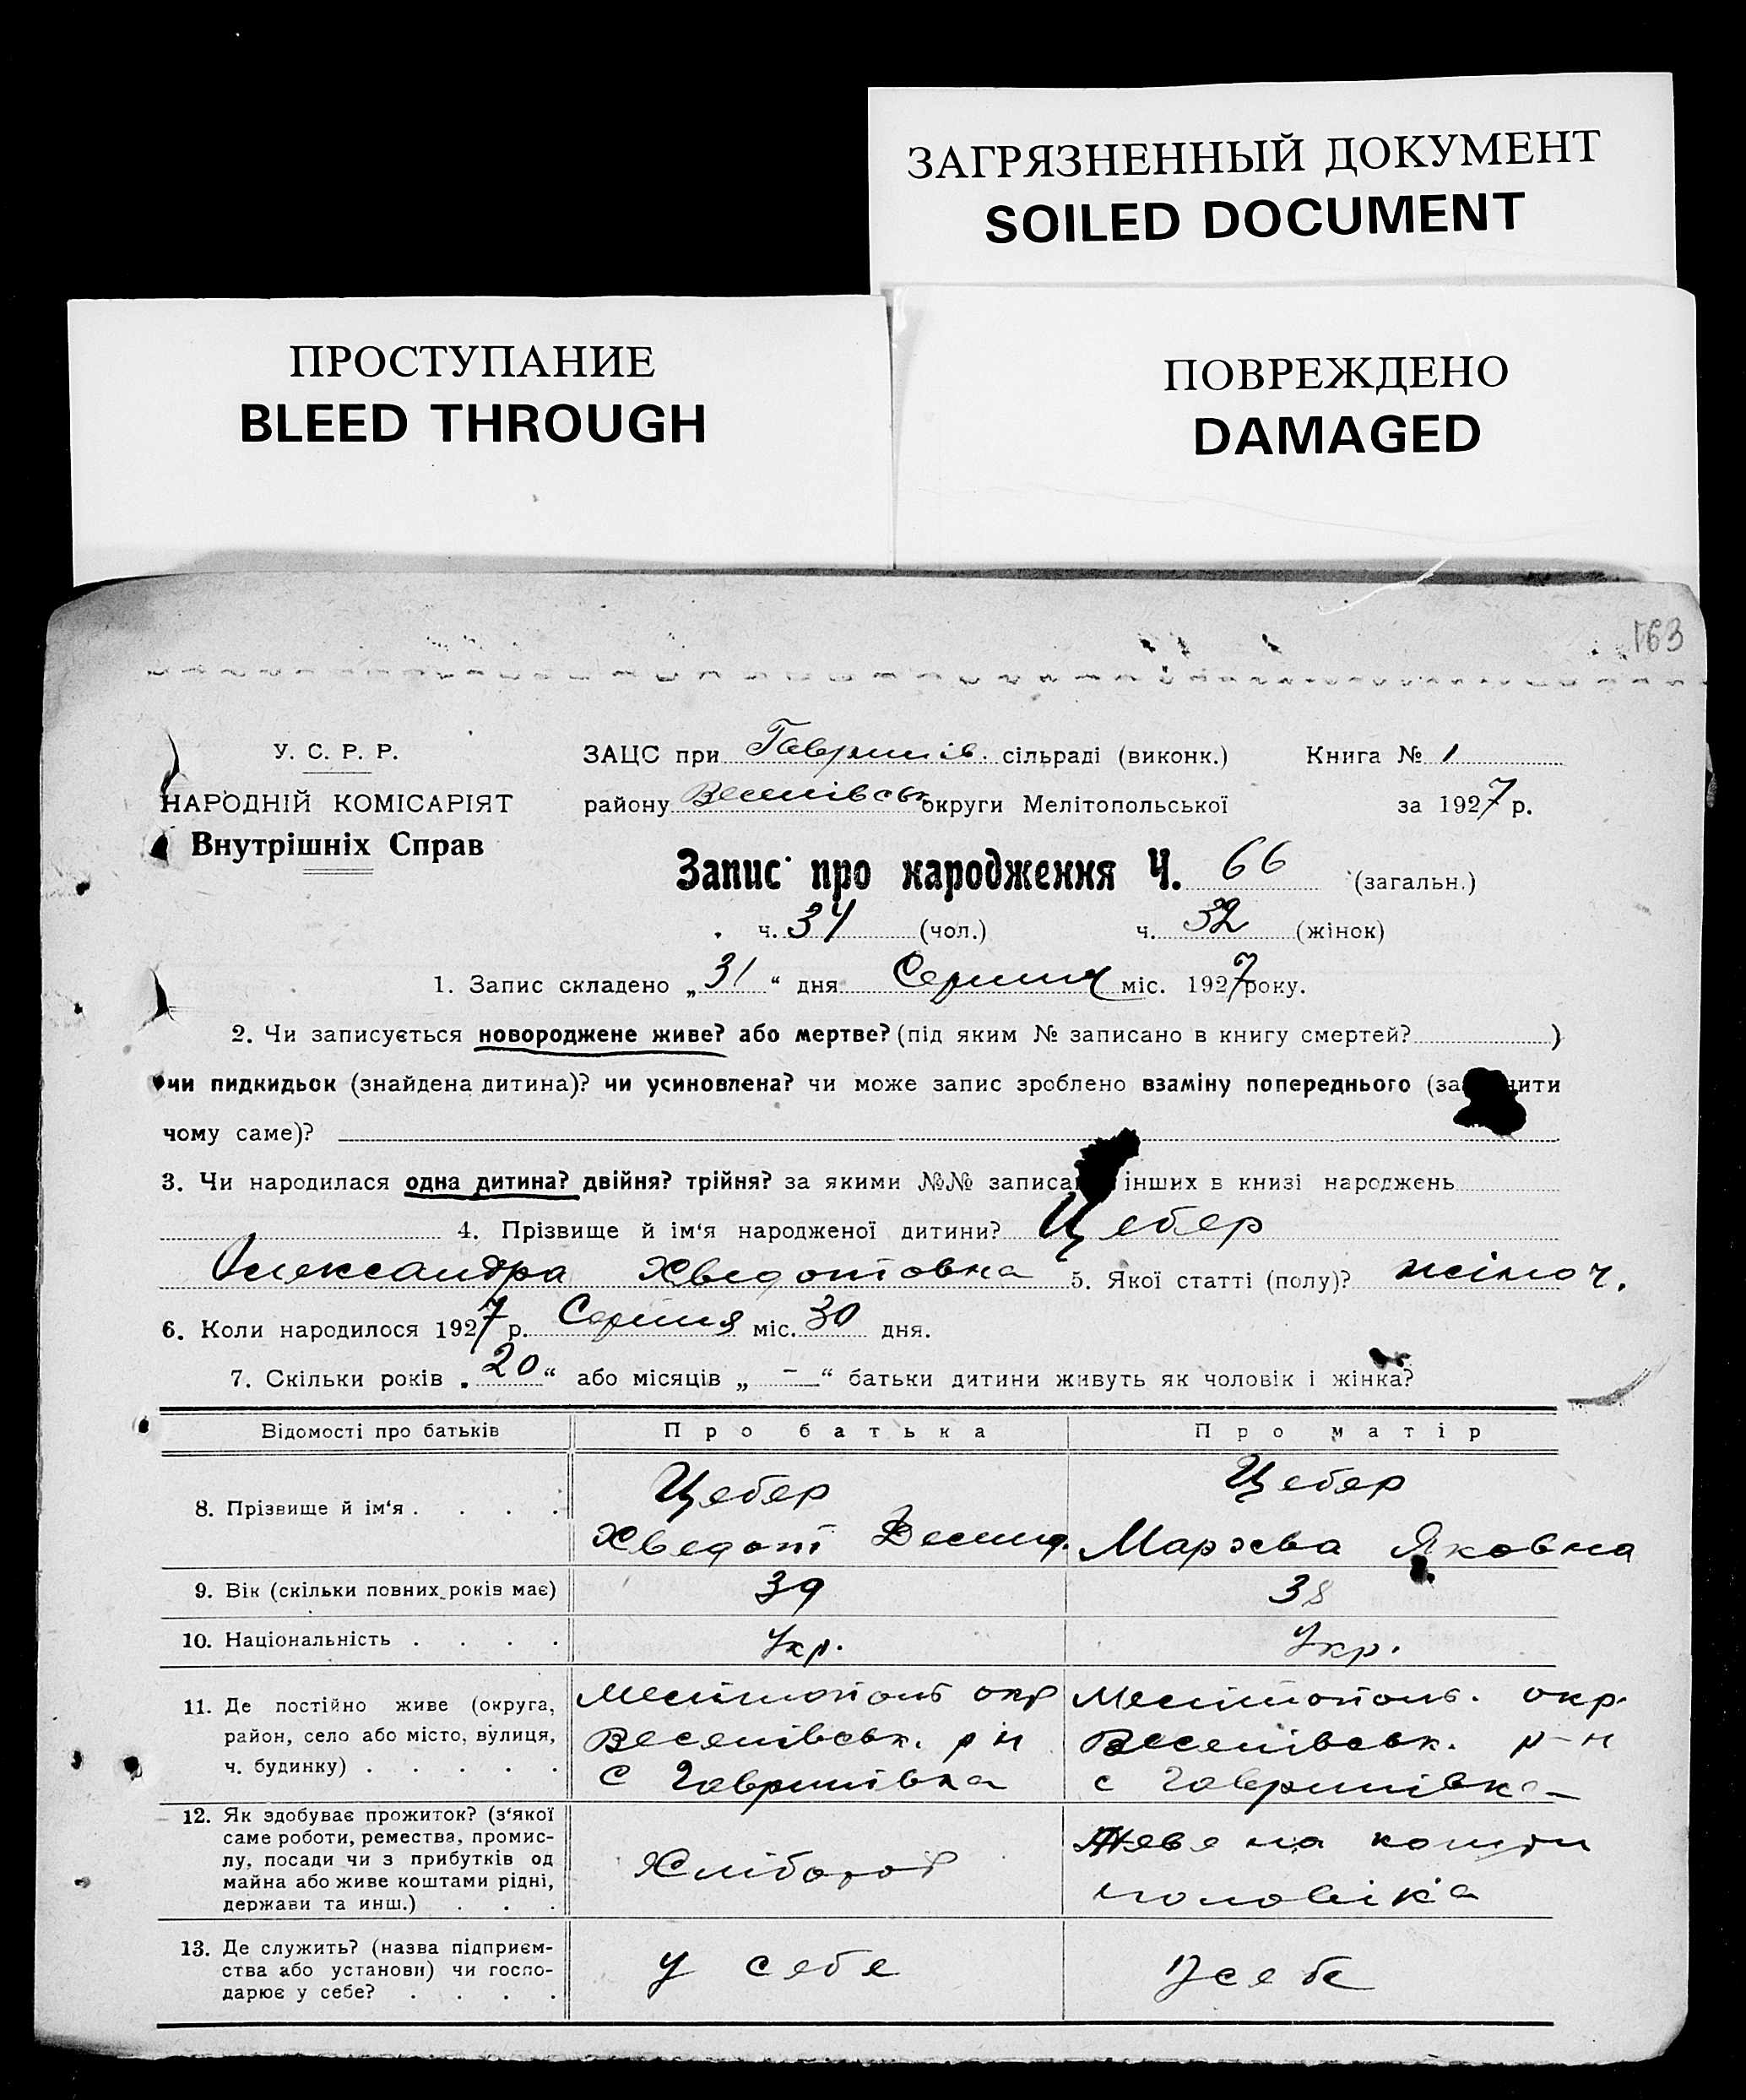 ЗАГРЯЗНЕННЫЙ ДОКУМЕНТ
SOILED DOCUMENT
ПРОСТУПАНИЕ
BLEED THROUGH
ПОВРЕЖДЕНО
DAMAGED
163
У. С. Р. Р.
НАРОДНІЙ КОМІСАРІЯТ
Внутрішніх Справ
ЗАЦС при Гаврилів. сільраді (виконк.) Книга № 1
району Веселівськ округи Мелітопольської за 1927 р.
Запис про народження Ч. 66 (загальн.)
ч. 34 (чол.) ч. 32 (жінок)
1. Запис складено „31“ дня Серпня міс. 1927 року.
2. Чи записується новороджене живе? або мертве? (під яким № записано в книгу смертей? )
чи пидкидьок (знайдена дитина)? чи усиновлена? чи може запис зроблено взаміну попереднього (за нити
чому саме)?
3. Чи народилася одна дитина? двійня? трійня? за якими №№ записа інших в книзі народжень
4. Прізвище й ім‘я народженої дитини? Цебер
Александра Хведотовна 5. Якої статті (полу)? жіноч.
6. Коли народилося 1927 р. Серпня міс. 30 дня.
7. Скільки років „20“ або місяців „—“ батьки дитини живуть як чоловік і жінка?
Відомості про батьків Про батька Про матір
8. Прізвище й ім‘я . . . . Цебер Цебер
Хведот Марэва Яковна
9. Вік (скільки повних років має) 39 38
10. Національність . . . . Укр. Укр.
11. Де постійно живе (округа, Мелітополь окр Мелітополь. окр.
район, село або місто, вулиця, Веселівськ. р н Веселівськ. р-н
ч. будинку) . . . . . с Гаврилівка с Гаврилівка
12. Як здобуває прожиток? (з‘якої
саме роботи, ремества, промис-
лу, посади чи з прибутків од
майна або живе коштами рідні,
держави та инш.) . . .
Хлібороб
Жеве на кошти
чоловіка
13. Де служить? (назва підприєм-
ства або установи) чи госпо-
дарює у себе? . . . .
у себе
У себе